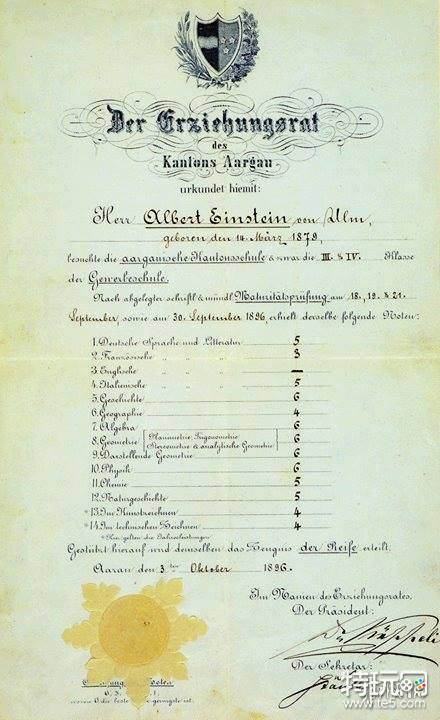 Der Erziehungsrat
des
Kantons Aargau
urkundet hiemit:
Herr Albert Einstein von Ulm,
geboren den 14. März 1879,
besuchte die aargauische Kantonsschule & zwar die III. & IV. Klasse
der Gewerbeschule.
Nach abgelegter schriftl. & mündl. Maturitätsprüfung am 18., 19. & 21.
September, sowie am 30. September 1896, erhielt derselbe folgende Noten:
1. Deutsche Sprache und Litteratur 5
2. Französische " " " 3
3. Englische " " " —
4. Italienische " " " 5
5. Geschichte 6
6. Geographie 4
7. Algebra 6
8. Geometrie (Planimetrie, Trigonometrie, Stereometrie & analytische Geometrie) 6
9. Darstellende Geometrie 6
10. Physik 6
11. Chemie 5
12. Naturgeschichte 5
*13. Im Kunstzeichnen 4
*14. Im technischen Zeichnen 4
*Hier gelten die Jahresleistungen.
Gestützt hierauf wird demselben das Zeugnis der Reife erteilt.
Aarau den 3ten Oktober 1896.
Im Namen des Erziehungsrates,
Der Präsident:
Der Sekretär:
6. 5.
wovon 6 die beste geringste ist.
特玩网
www.te5.com